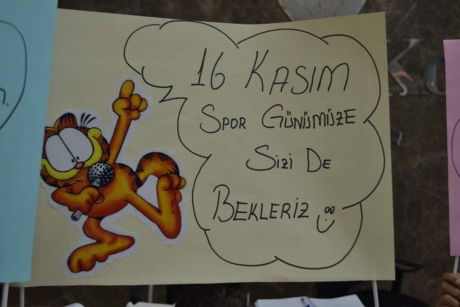 16 KASIM
SPOR GÜNÜMÜZE
SİZİ DE
BEKLERİZ